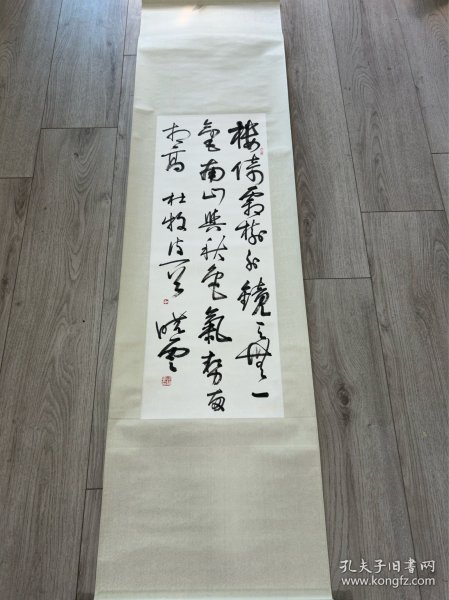 楼倚霜树外镜天無一
毫南山與秋色氣勢両
相高 杜牧诗一首 晓雲
孔夫子旧书网
www.kongfz.com